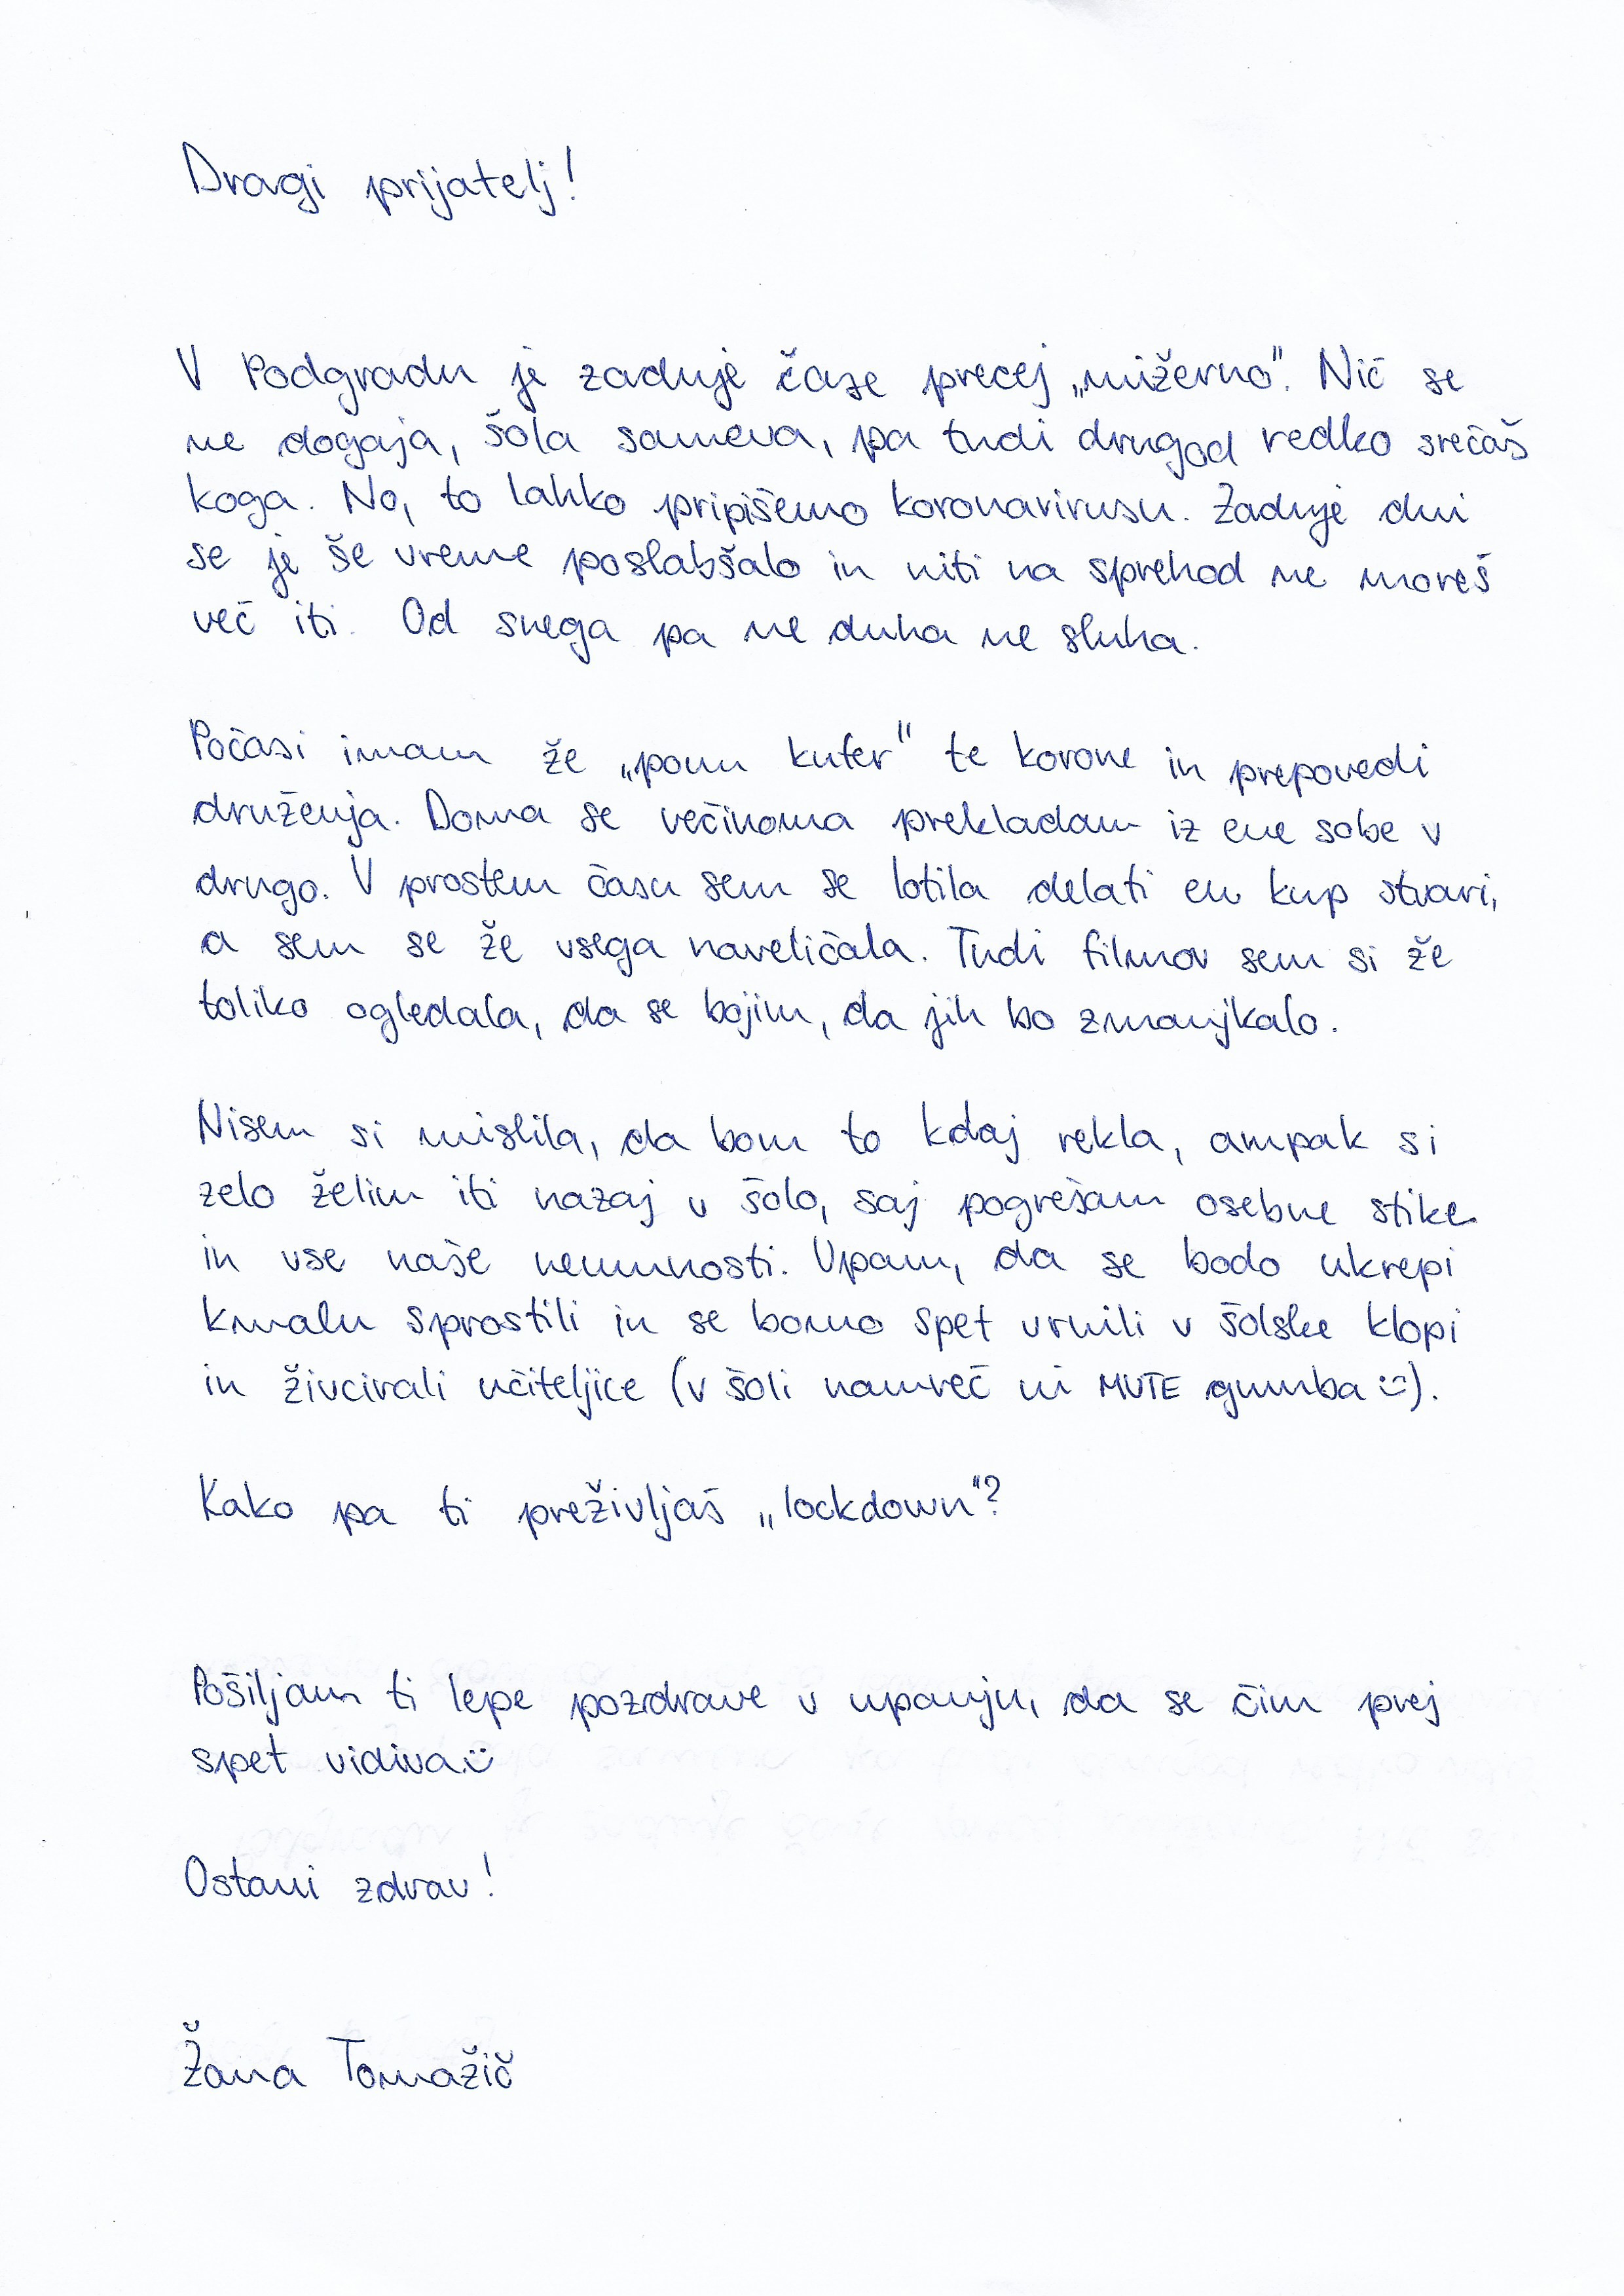 Dragi prijatelj!
V Podgradu je zadnje čase precej „mižerno". Nič se
ne dogaja, šola sameva, pa tudi drugod redko srečaš
koga. No, to lahko pripišemo koronavirusu. Zadnje dni
se je še vreme poslabšalo in niti na sprehod ne moreš
več iti. Od snega pa ne duha ne sluha.
Počasi imam že „poun kufer" te korone in prepovedi
druženja. Doma se večinoma prekladam iz ene sobe v
drugo. V prostem času sem se lotila delati en kup stvari,
a sem se že vsega naveličala. Tudi filmov sem si že
toliko ogledala, da se bojim, da jih bo zmanjkalo.
Nisem si mislila, da bom to kdaj rekla, ampak si
zelo želim iti nazaj v šolo, saj pogrešam osebne stike
in vse naše neumnosti. Upam, da se bodo ukrepi
kmalu sprostili in se bomo spet vrnili v šolske klopi
in živcirali učiteljice (v šoli namreč ni MUTE gumba :)).
Kako pa ti preživljaš „lockdown"?
Pošiljam ti lepe pozdrave v upanju, da se čim prej
spet vidiva :)
Ostani zdrav!
Žana Tomažič